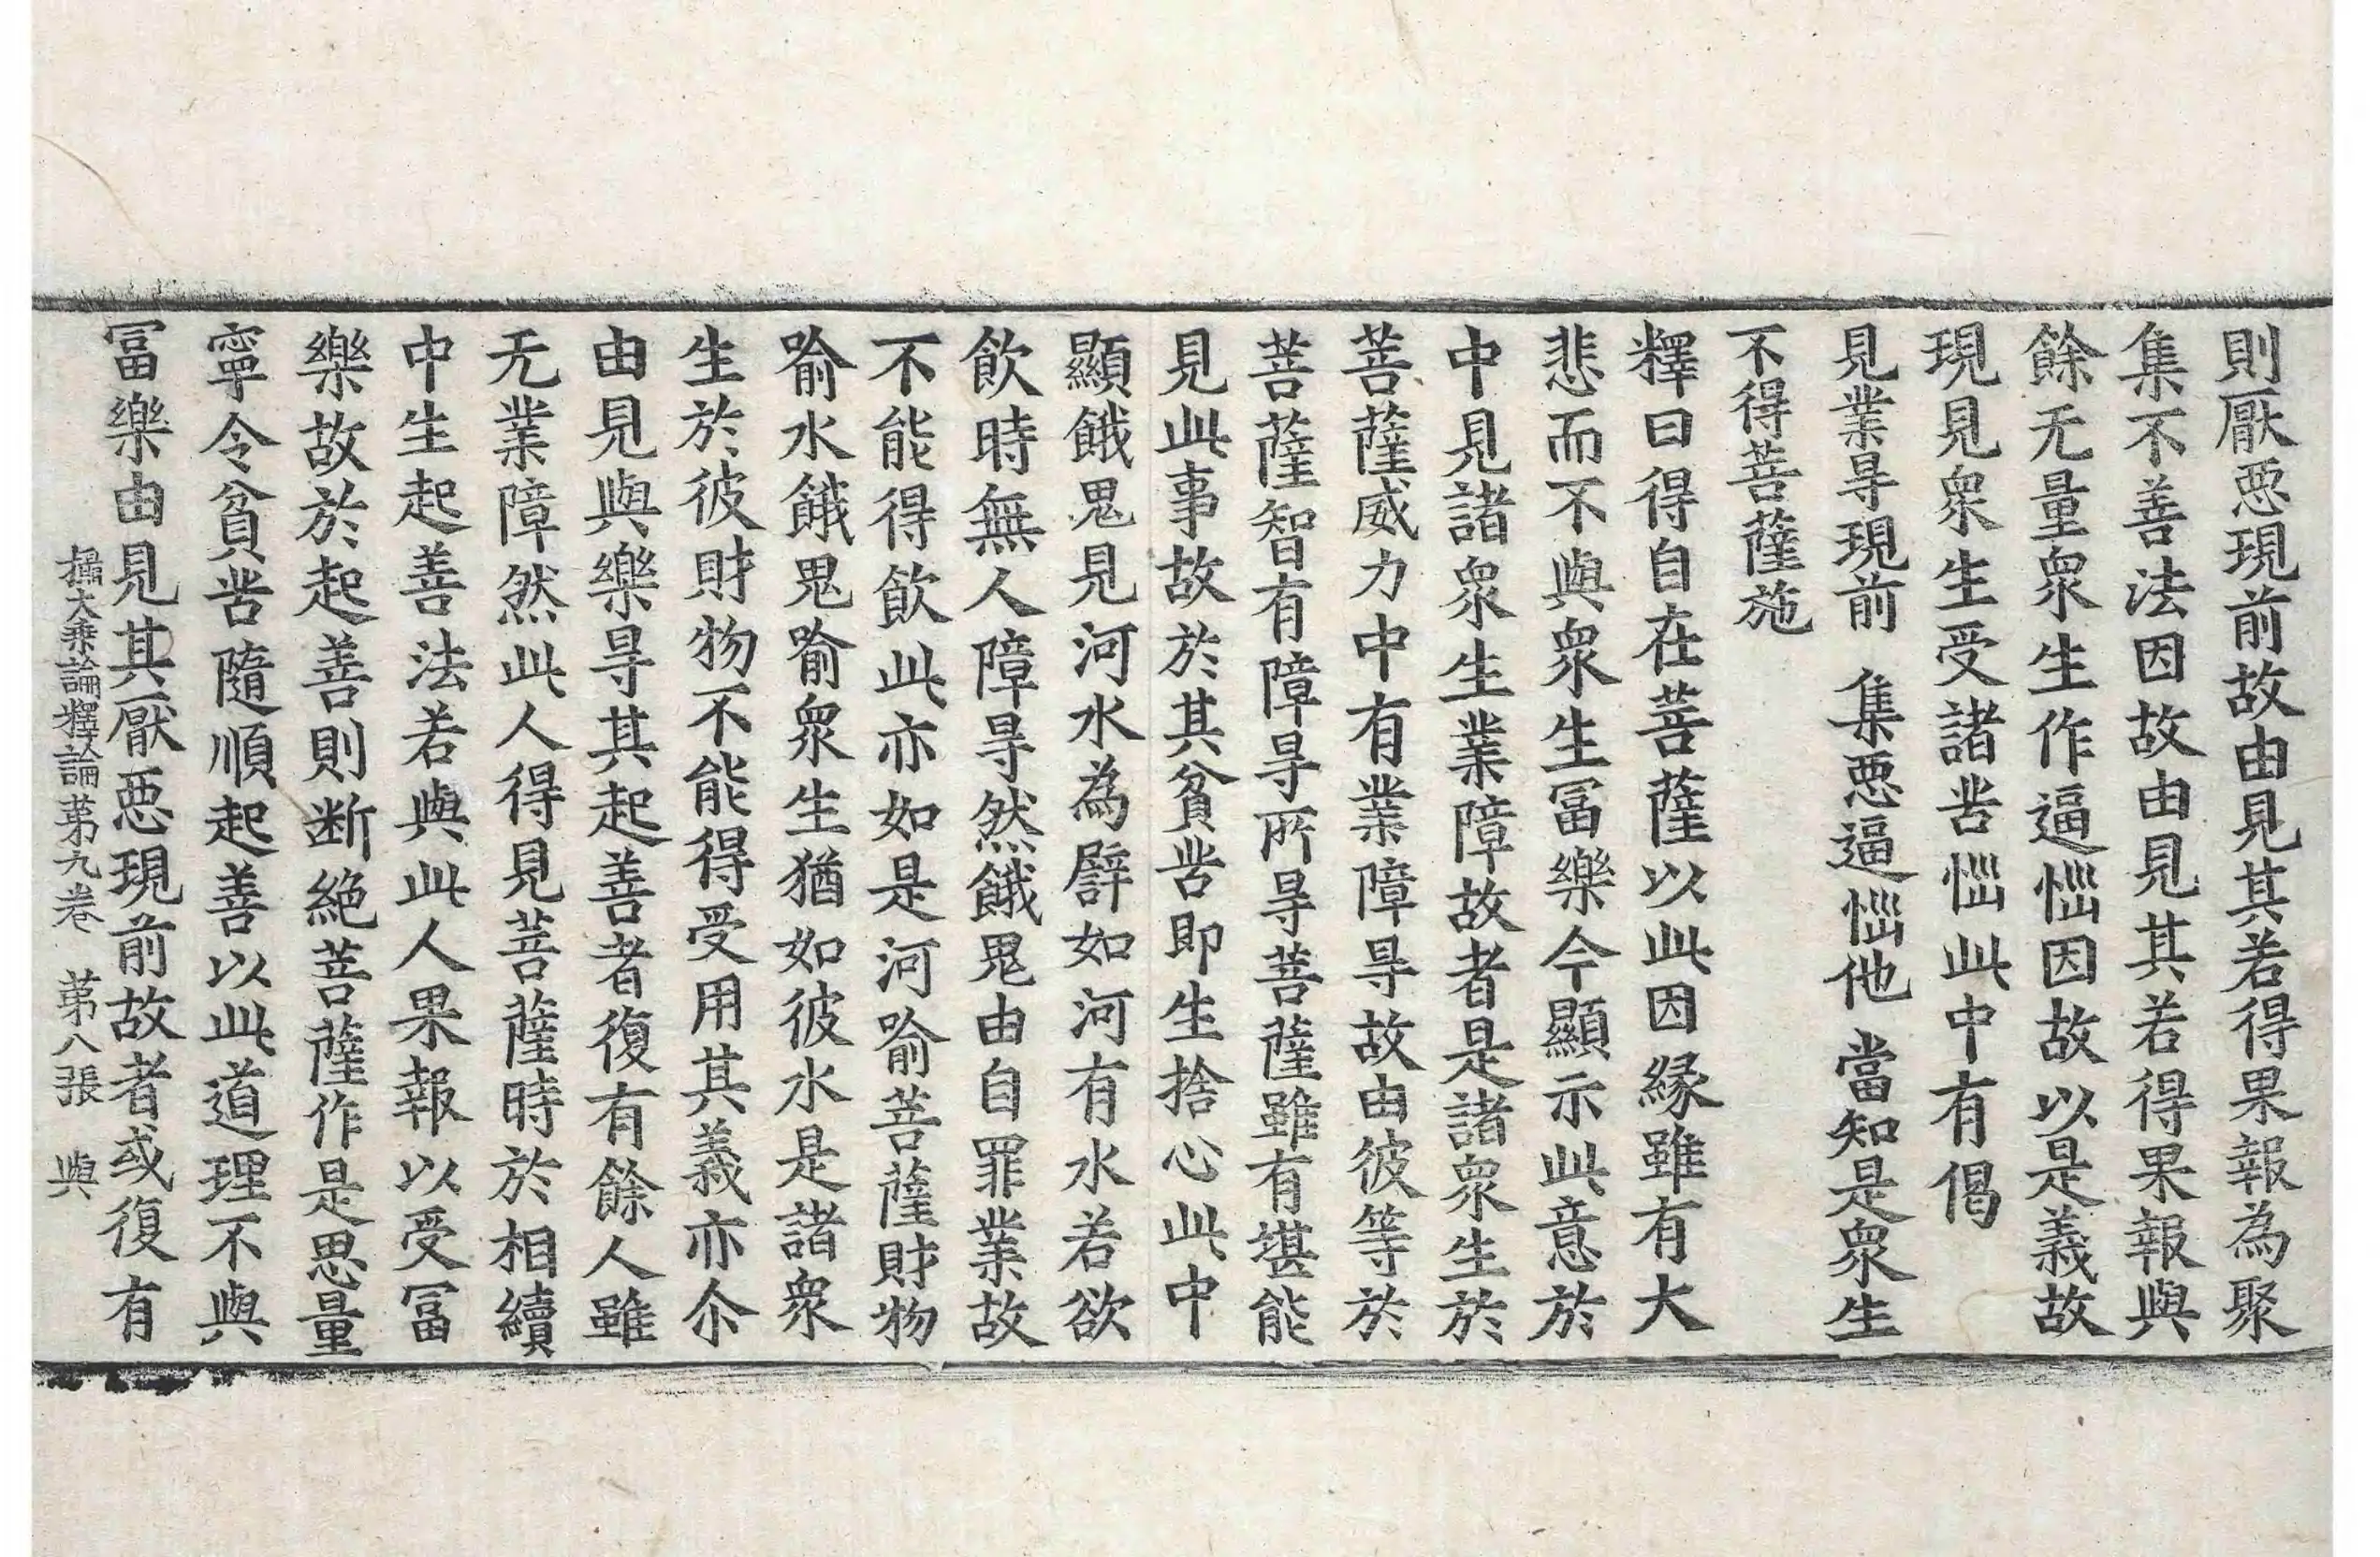 則厭惡現前故由見其若得果報為聚
集不善法因故由見其若得果報與
餘无量眾生作逼惱因故以是義故
現見眾生受諸苦惱此中有偈
見業㝵現前　集惡逼惱他　當知是眾生
不得菩薩施
釋曰得自在菩薩以此因緣雖有大
悲而不與眾生冨樂今顯示此意於
中見諸眾生業障故者是諸眾生於
菩薩威力中有業障㝵故由彼等於
菩薩智有障㝵所㝵菩薩雖有堪能
見此事故於其貧苦即生捨心此中
顯餓鬼見河水為譬如河有水若欲
飲時無人障㝵然餓鬼由自罪業故
不能得飲此亦如是河喻菩薩財物
喻水餓鬼喻眾生猶如彼水是諸眾
生於彼財物不能得受用其義亦尒
由見與樂㝵其起善者復有餘人雖
无業障然此人得見菩薩時於相續
中生起善法若與此人果報以受冨
樂故於起善則断絕菩薩作是思量
寧令貧苦隨順起善以此道理不與
冨樂由見其厭惡現前故者或復有
攝大乘論釋論第九卷　第八張　與